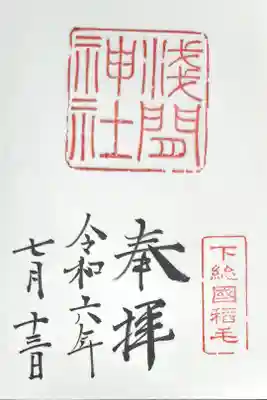 浅間
神社
下総國稲毛
奉拝
令和六年
七月十三日